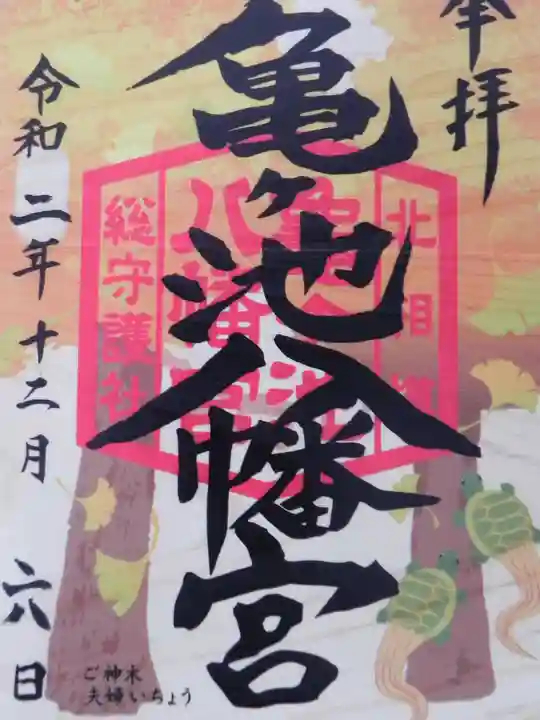 奉拝
北相模
亀ヶ池
八幡宮
総守護社
亀ヶ池八幡宮
令和二年十二月六日
ご神木
夫婦いちょう